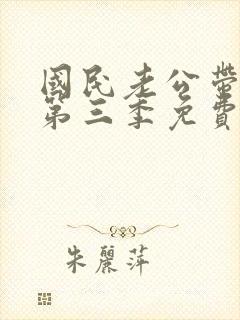 國民老公帶
第三季免費
朱麗萍